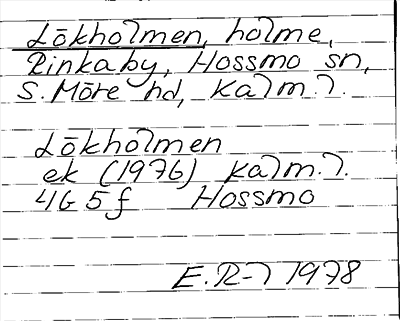 Lökholmen, holme,
Rinkaby, Hossmo sn,
S. Möre hd, Kalm. l.
Lökholmen
ek (1976) Kalm. l.
4G 5f Hossmo
E.R-l 1978